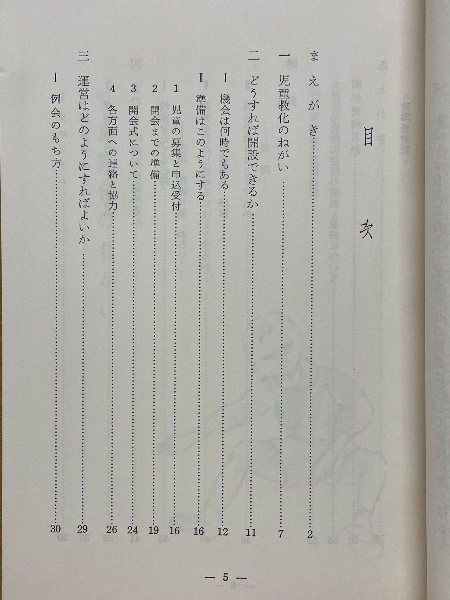 目次
まえがき……2
一 児童教化のねがい……7
二 どうすれば開設できるか……11
Ⅰ 機会は何時でもある……12
Ⅱ 準備はこのようにする……16
1 児童の募集と申込受付……16
2 開会までの準備……19
3 開会式について……24
4 各方面への連絡と協力……26
三 運営はどのようにすればよいか……29
Ⅰ 例会のもち方……30
— 5 —